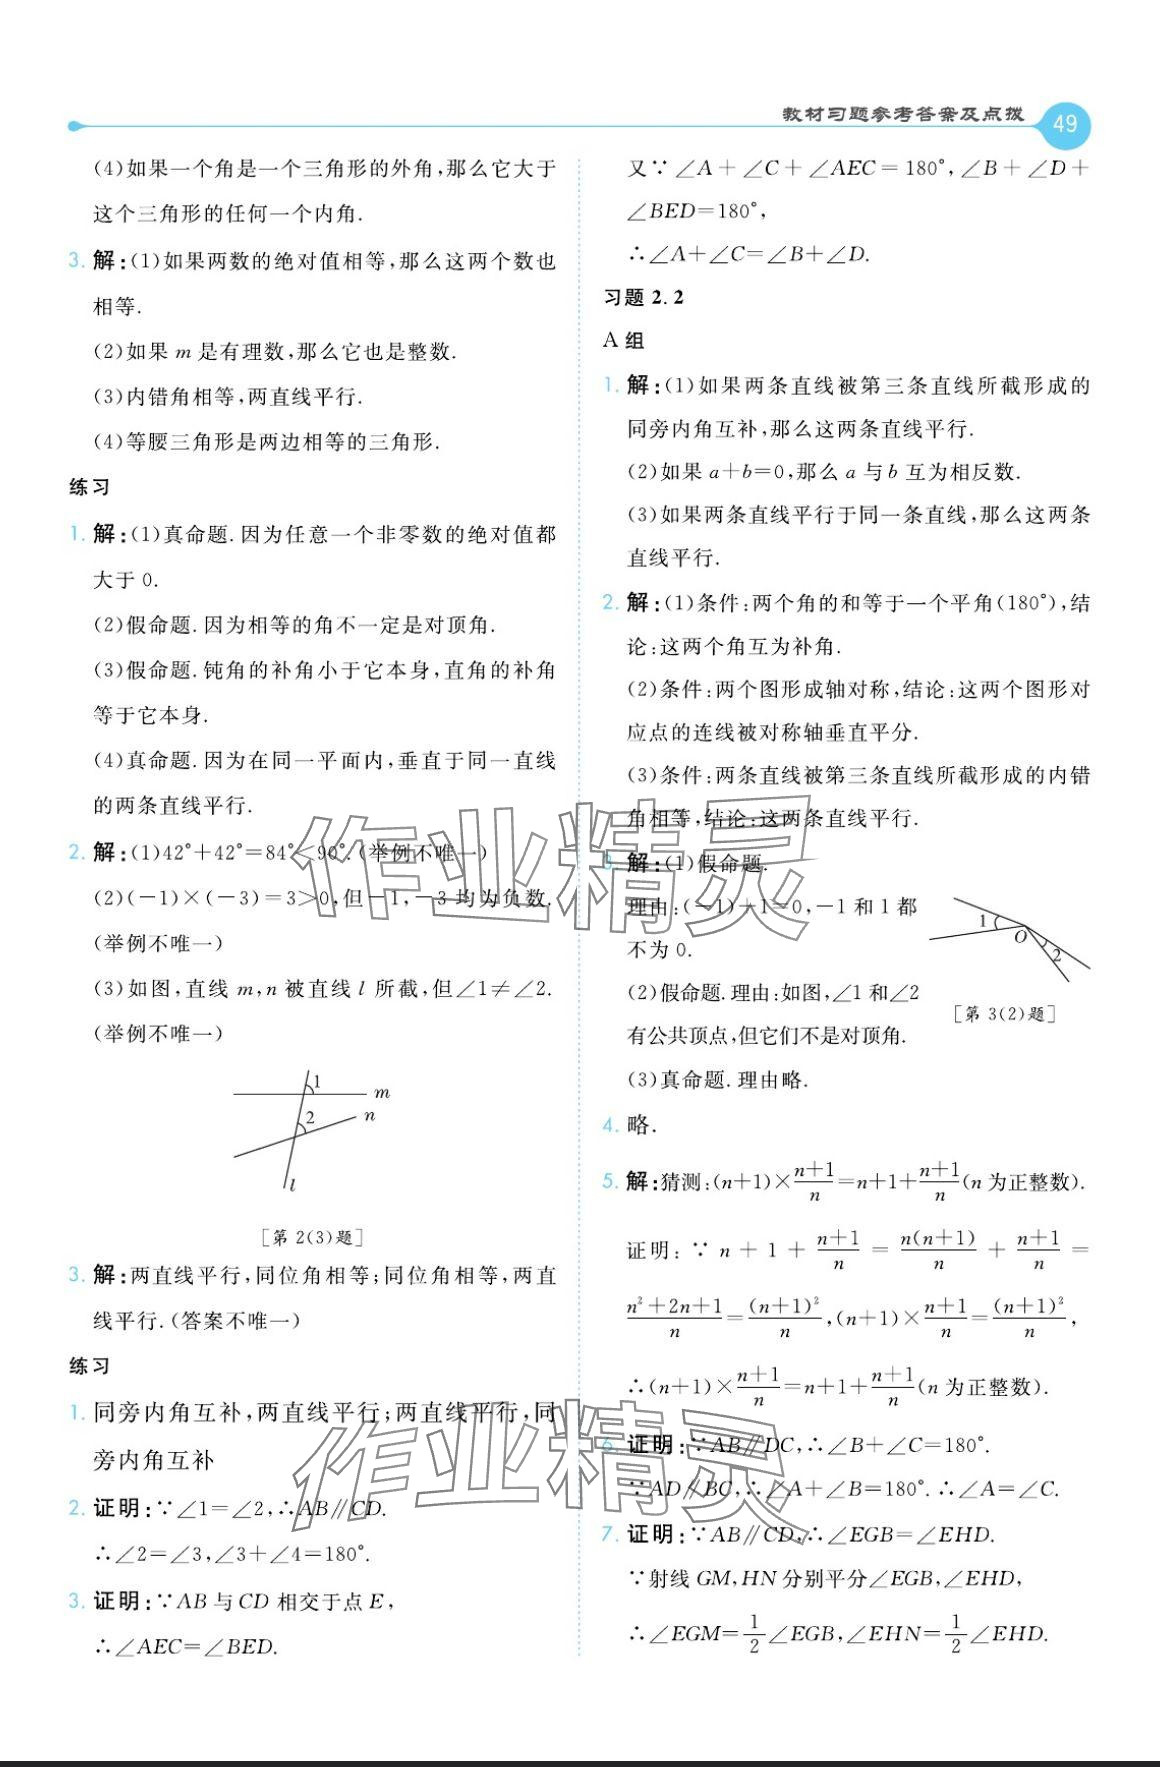 教材习题参考答案及点拨 49
(4)如果一个角是一个三角形的外角,那么它大于
这个三角形的任何一个内角.
3. 解:(1)如果两数的绝对值相等,那么这两个数也
相等.
(2)如果 m 是有理数,那么它也是整数.
(3)内错角相等,两直线平行.
(4)等腰三角形是两边相等的三角形.
练习
1. 解:(1)真命题.因为任意一个非零数的绝对值都
大于 0.
(2)假命题.因为相等的角不一定是对顶角.
(3)假命题.钝角的补角小于它本身,直角的补角
等于它本身.
(4)真命题.因为在同一平面内,垂直于同一直线
的两条直线平行.
2. 解:(1)42°+42°=84°<90°.(举例不唯一)
(2)(-1)×(-3)=3>0,但-1,-3均为负数.
(举例不唯一)
(3)如图,直线 m,n 被直线 l 所截,但∠1≠∠2.
(举例不唯一)
1
m
2
n
l
[第 2(3)题]
3. 解:两直线平行,同位角相等;同位角相等,两直
线平行.(答案不唯一)
练习
1. 同旁内角互补,两直线平行;两直线平行,同
旁内角互补
2. 证明:∵∠1=∠2,∴AB∥CD.
∴∠2=∠3,∠3+∠4=180°.
3. 证明:∵AB 与 CD 相交于点 E,
∴∠AEC=∠BED.
又∵∠A+∠C+∠AEC=180°,∠B+∠D+
∠BED=180°,
∴∠A+∠C=∠B+∠D.
习题 2.2
A 组
1. 解:(1)如果两条直线被第三条直线所截形成的
同旁内角互补,那么这两条直线平行.
(2)如果 a+b=0,那么 a 与 b 互为相反数.
(3)如果两条直线平行于同一条直线,那么这两条
直线平行.
2. 解:(1)条件:两个角的和等于一个平角(180°),结
论:这两个角互为补角.
(2)条件:两个图形成轴对称,结论:这两个图形对
应点的连线被对称轴垂直平分.
(3)条件:两条直线被第三条直线所截形成的内错
角相等,结论:这两条直线平行.
3. 解:(1)假命题.
理由:(-1)+1=0,-1 和 1 都
不为 0.
(2)假命题.理由:如图,∠1 和∠2
有公共顶点,但它们不是对顶角.
1
O
2
[第 3(2)题]
(3)真命题.理由略.
4. 略.
5. 解:猜测:(n+1)×(n+1)/n=n+1+(n+1)/n(n 为正整数).
证明:∵n+1+(n+1)/n=n(n+1)/n+(n+1)/n=
(n²+2n+1)/n=(n+1)²/n,(n+1)×(n+1)/n=(n+1)²/n,
∴(n+1)×(n+1)/n=n+1+(n+1)/n(n 为正整数).
6. 证明:∵AB∥DC,∴∠B+∠C=180°.
∵AD∥BC,∴∠A+∠B=180°.∴∠A=∠C.
7. 证明:∵AB∥CD,∴∠EGB=∠EHD.
∵射线 GM,HN 分别平分∠EGB,∠EHD,
∴∠EGM=1/2∠EGB,∠EHN=1/2∠EHD.
作业精灵
作业精灵